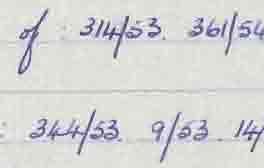 of : 314/53. 361/54
: 344/53. 9/53. 14/